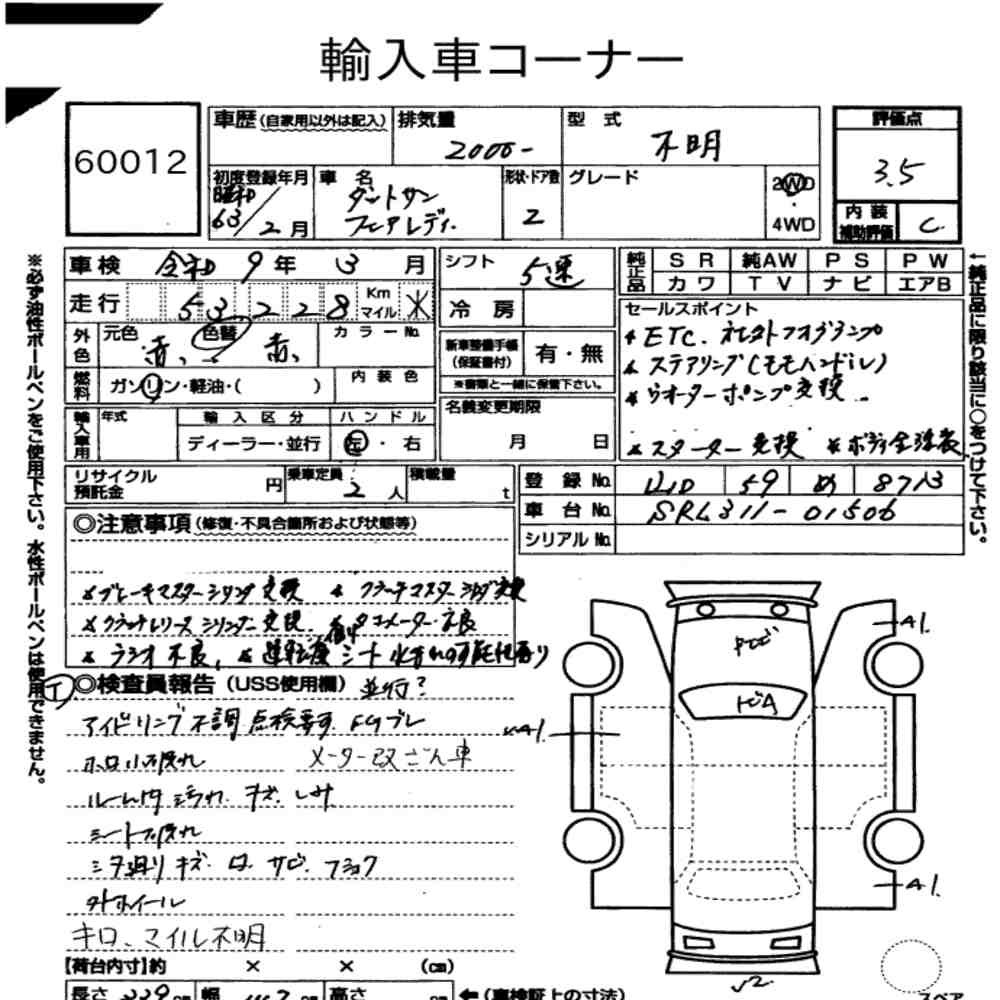 輸入車コーナー
60012
車歴 (自家用以外は記入)
排気量
2000-
型式
不明
評価点
3.5
初度登録年月
昭和
63/2月
車名
ダットサン
フェアレディ
形状・ドア数
2
グレード
2WD
・
4WD
内装
補助評価
C
車検 令和 9年 3月
走行 53228 Km マイル
外色
元色 赤、
色替 赤、
カラーNo.
燃料
ガソリン・軽油・( )
内装色
輸入車用
年式
輸入区分
ディーラー・並行
ハンドル
左・右
リサイクル預託金 円
乗車定員 2人
積載量 t
シフト 5速
冷房
新車整備手帳
(保証書付)
有・無
※書類と一緒に保管下さい。
名義変更期限
月 日
純正品
SR 純AW PS PW
カワ TV ナビ エアB
セールスポイント
ETC.
ステアリング(モモハンドル)
ウオーターポンプ交換
スターター交換
登録No. 59 め 8713
車台No. SRL311-01506
シリアルNo.
←純正品に限り該当に○をつけて下さい。
※必ず油性ボールペンをご使用下さい。水性ボールペンは使用できません。
◎注意事項 (修復・不具合箇所および状態等)
ブレーキマスターシリンダ交換 クラッチマスターシリンダ交換
クラッチレリーズシリンダー交換 タコメーター不良
ラジオ不良、 シート
◎検査員報告 (USS使用欄) 並行?
アイドリング不調 点検要す
ホロ小破れ メーター改ざん車
ルーム内汚れ キズ
シート破れ
下廻りキズ サビ
外ホイール
キロ、マイル不明
A1
A1
A1
【荷台内寸】約 × × (cm)
長さ cm 幅 cm 高さ cm
←(車検証上の寸法)
スペア